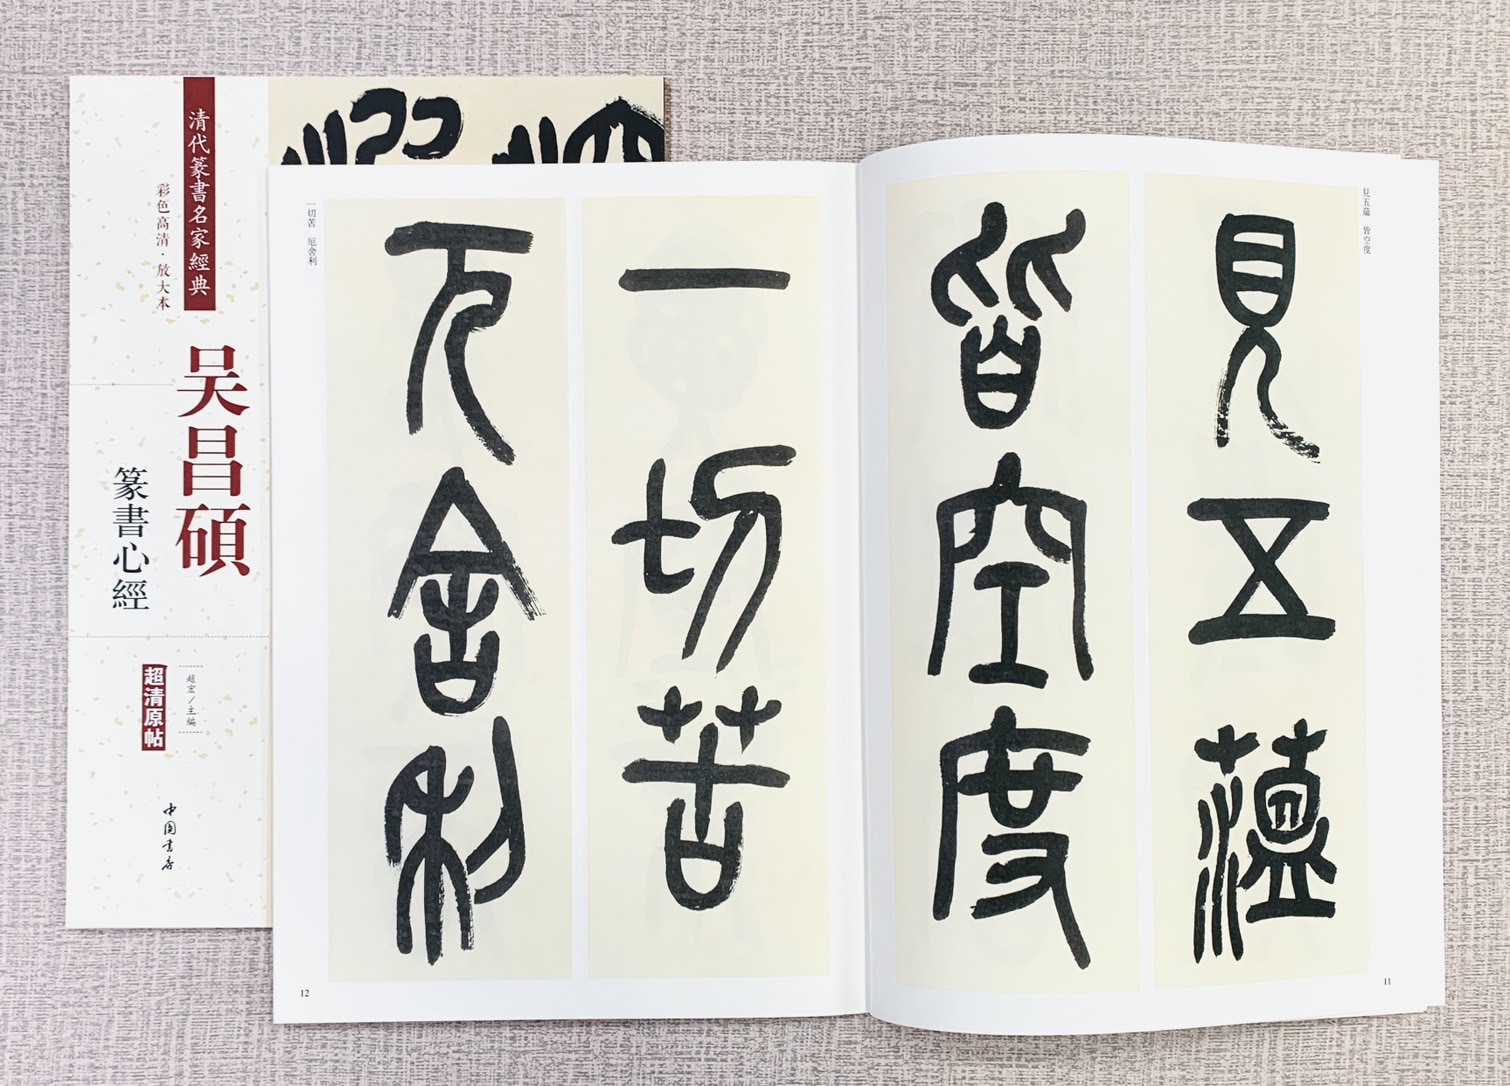 清代篆書名家經典
彩色高清·放大本
吴昌碩
篆書心經
趙宏/主編
超清原帖
中国書店
見五蘊 皆空度
見五蘊
皆空度
11
一切苦 厄舍利
一切苦
厄舍利
12